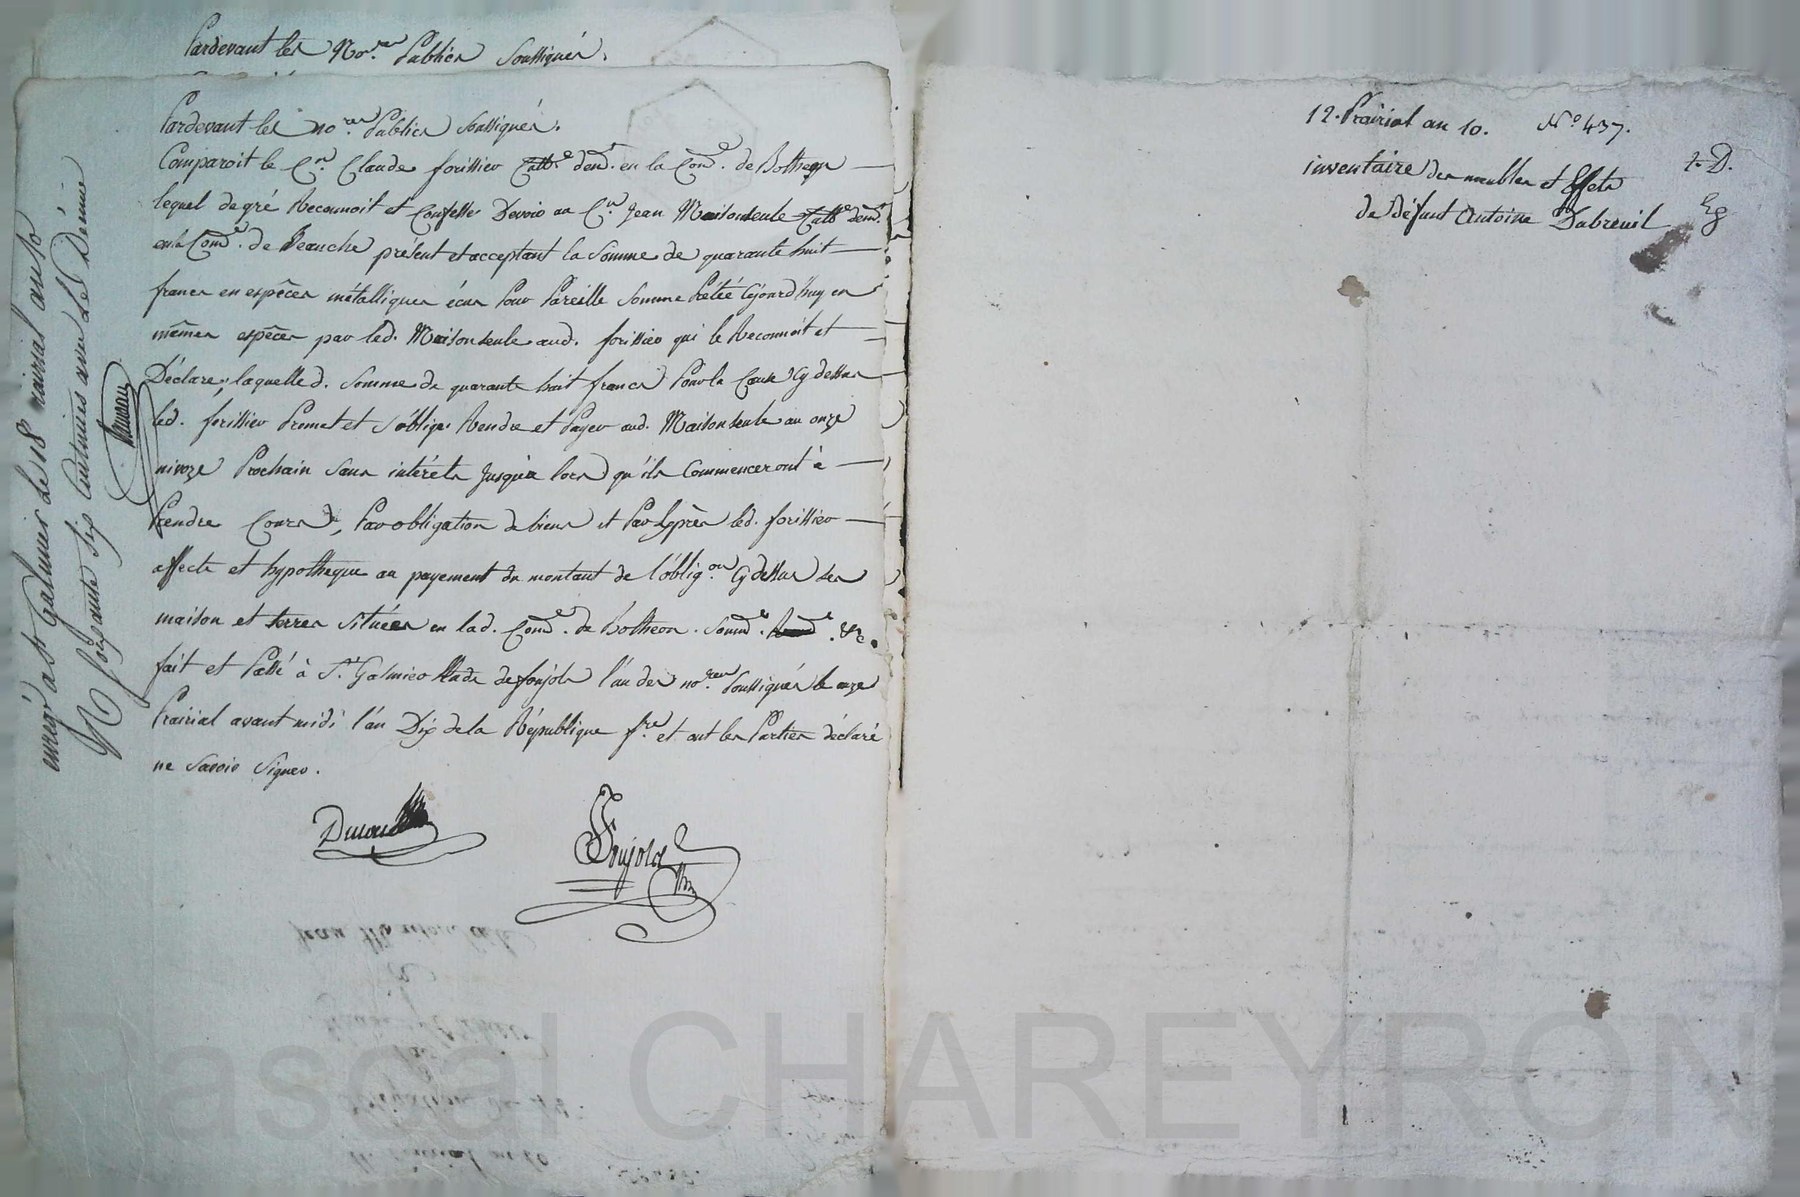 Pardevant les No.res Publics Soussignés.
Pardevant les no.res Publics Soussignés.
Comparoit le C.n Claude forissier Cultr.e demt. en la Com.e de Botheon
lequel de gré Reconnoit et Confesse Devoir au C.n Jean Maisonseule Cultr.e demt.
en la Com.e de présent et acceptant la Somme de quarante huit
francs en espèces métalliques écus Pour Pareille Somme Prêtée Cejourd'huy en
mêmes espèces par led. Maisonseule aud. forissier qui le Reconnoit et
Déclare, laquelle d. Somme de quarante huit francs Pour la Cause Cy dessus
led. forissier Promet et S'oblige Rendre et Payer aud. Maisonseule au onze
nivoze Prochain Sans intérêts Jusqu'a lors qu'ils Commenceront à
Prendre Cours, Par obligation de biens et Par Exprès led. forissier
affecte et hypotheque au payement du montant de l'oblig.on Cy dessus Ses
maison et terres Situées en lad. Com.e de Botheon. Soum.e &c.
fait et Passé à St. Galmier Etude de fonjols l'un des no.res Soussignés le onze
Prairial avant midi l'an Dix de la République f.se et ont les Parties déclaré
ne Savoir Signer.
Fonjols
enregé. a St Galmier le 18 prairial an 10
R Soixante Six Centimes avec le Décime
12. Prairial an 10. N.o 437.
inventaire des meubles et Effets
de défunt Antoine Dubreuil
Pascal CHAREYRON